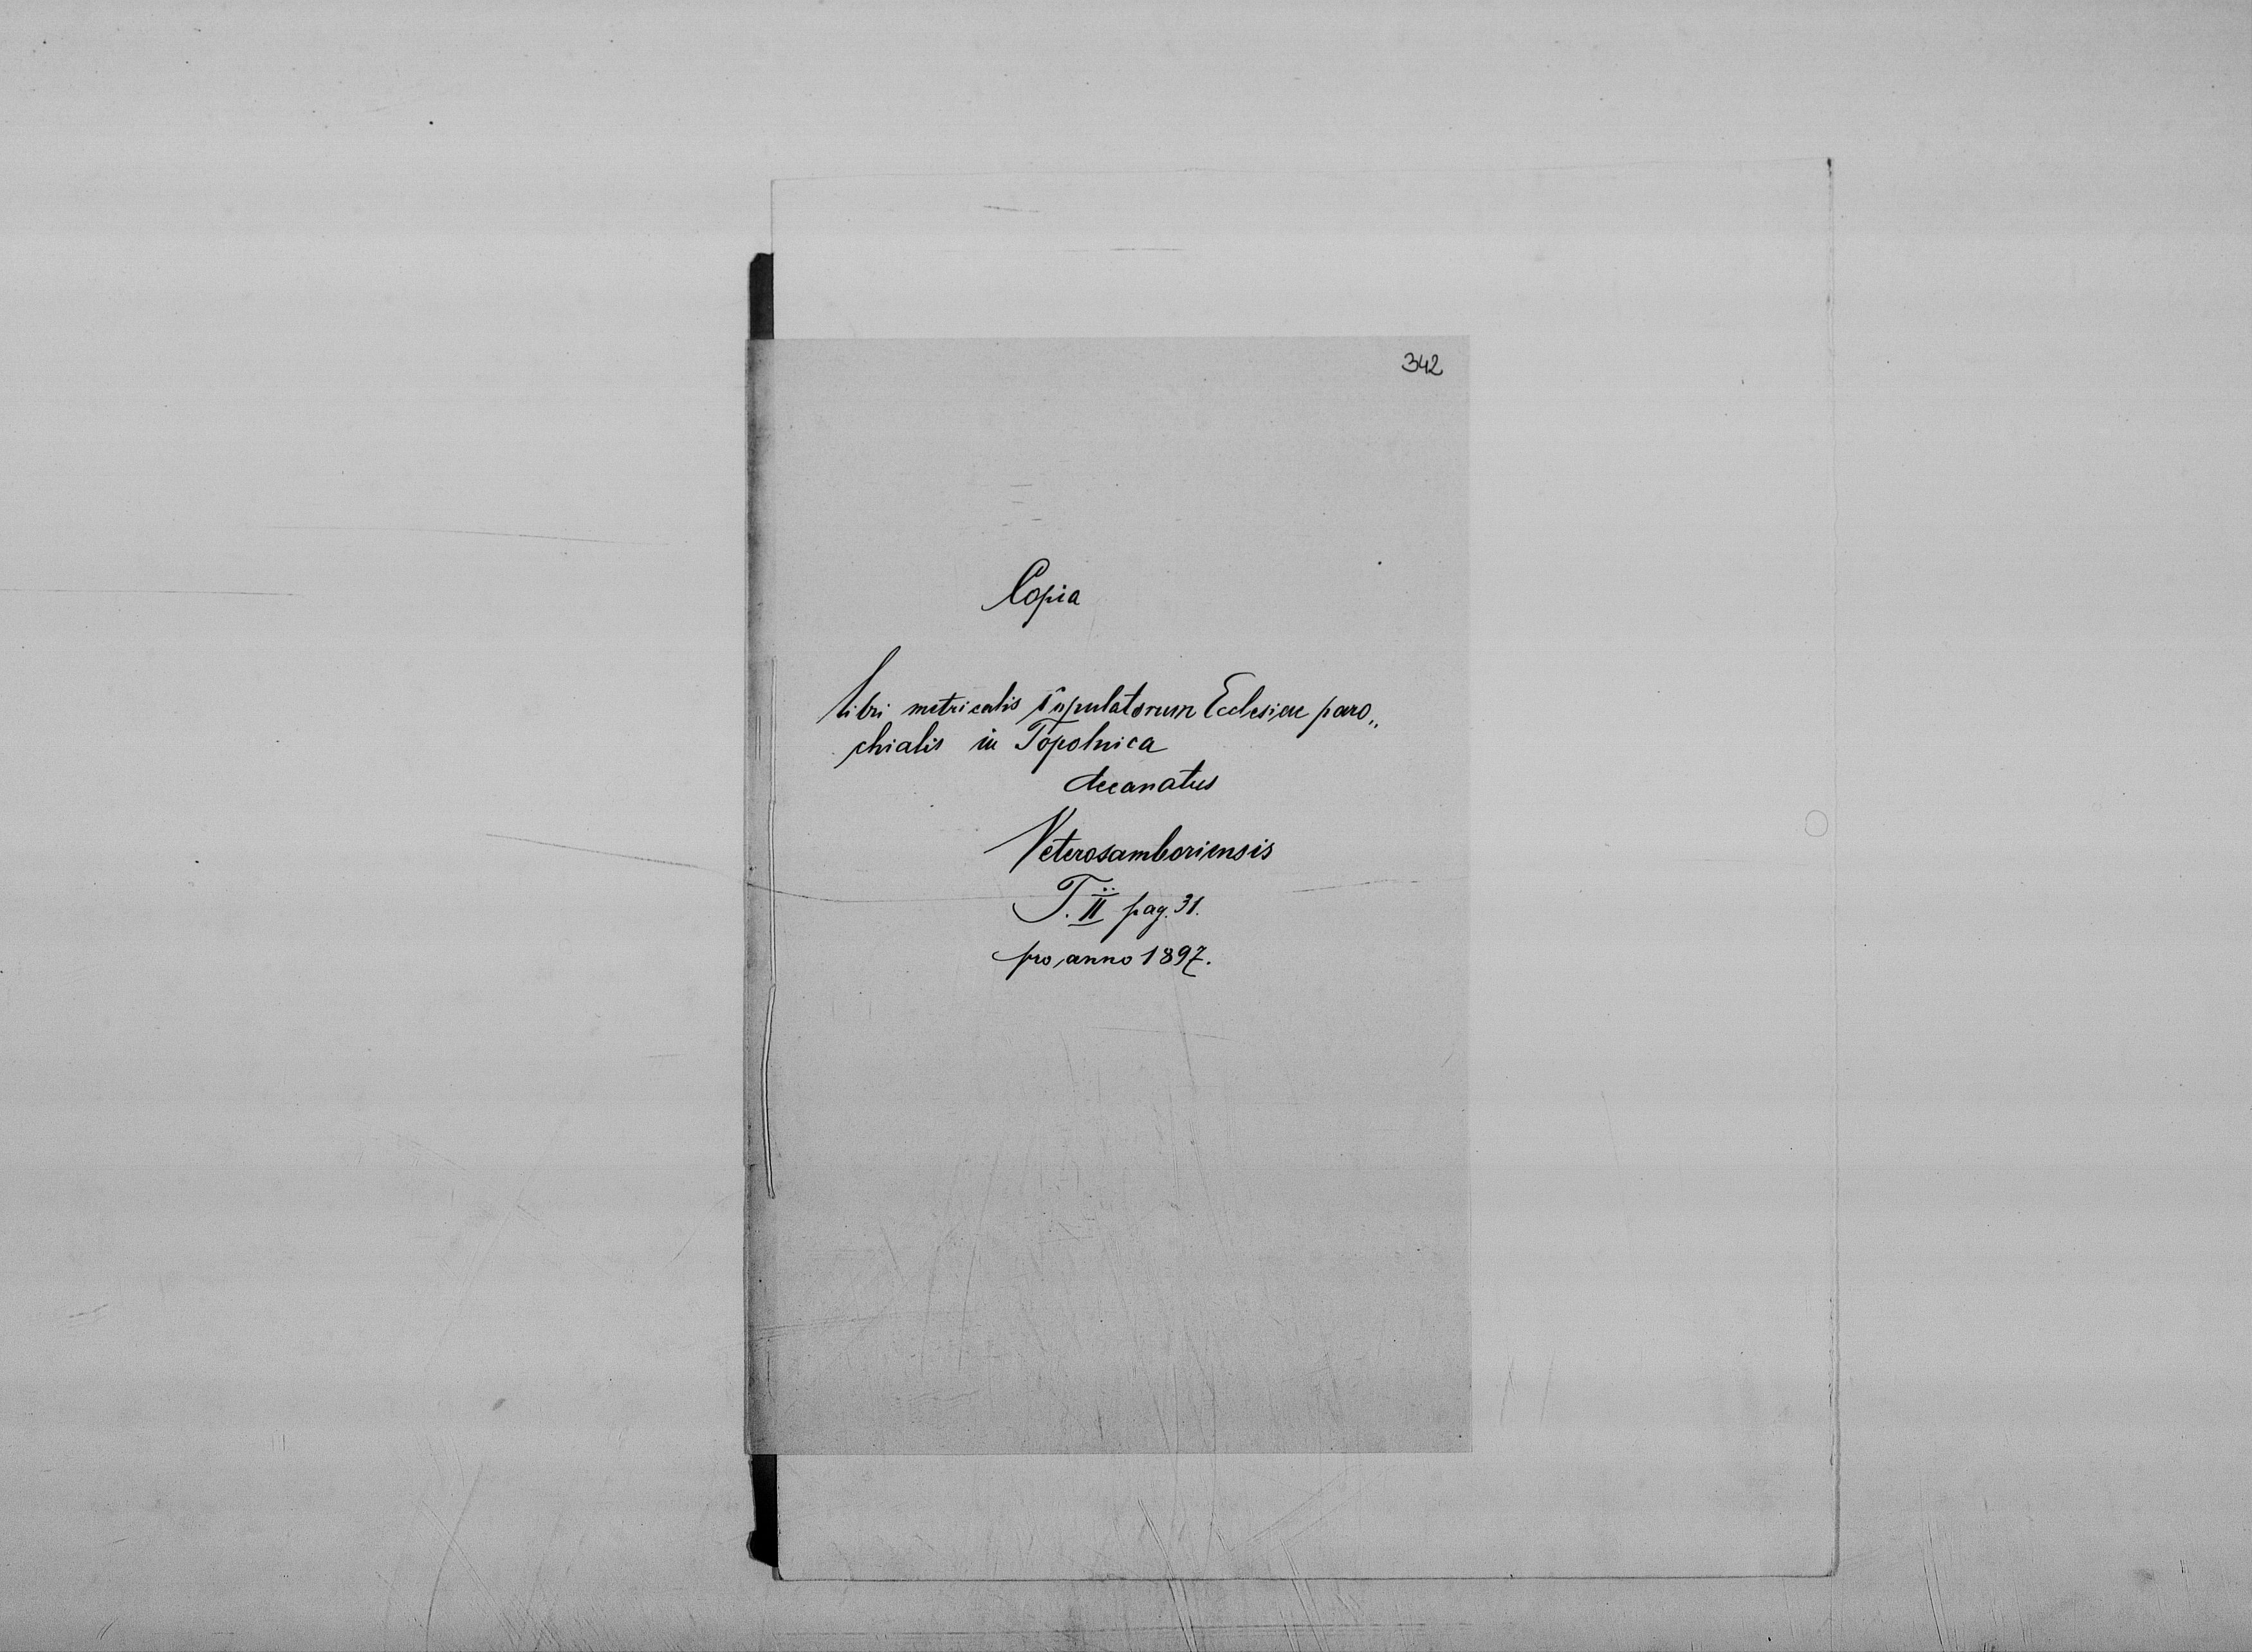 342
Copia
libri metricalis copulatorum Ecclesiae paro„
chialis in Topolnica
decanatus
Veterosamboriensis
T. II pag. 31.
pro anno 1897.